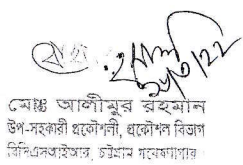 মোঃ আলীমুর রহমান
উপ-সহকারী প্রকৌশলী, প্রকৌশল বিভাগ
বিসিএসআইআর, চট্টগ্রাম গবেষণাগার